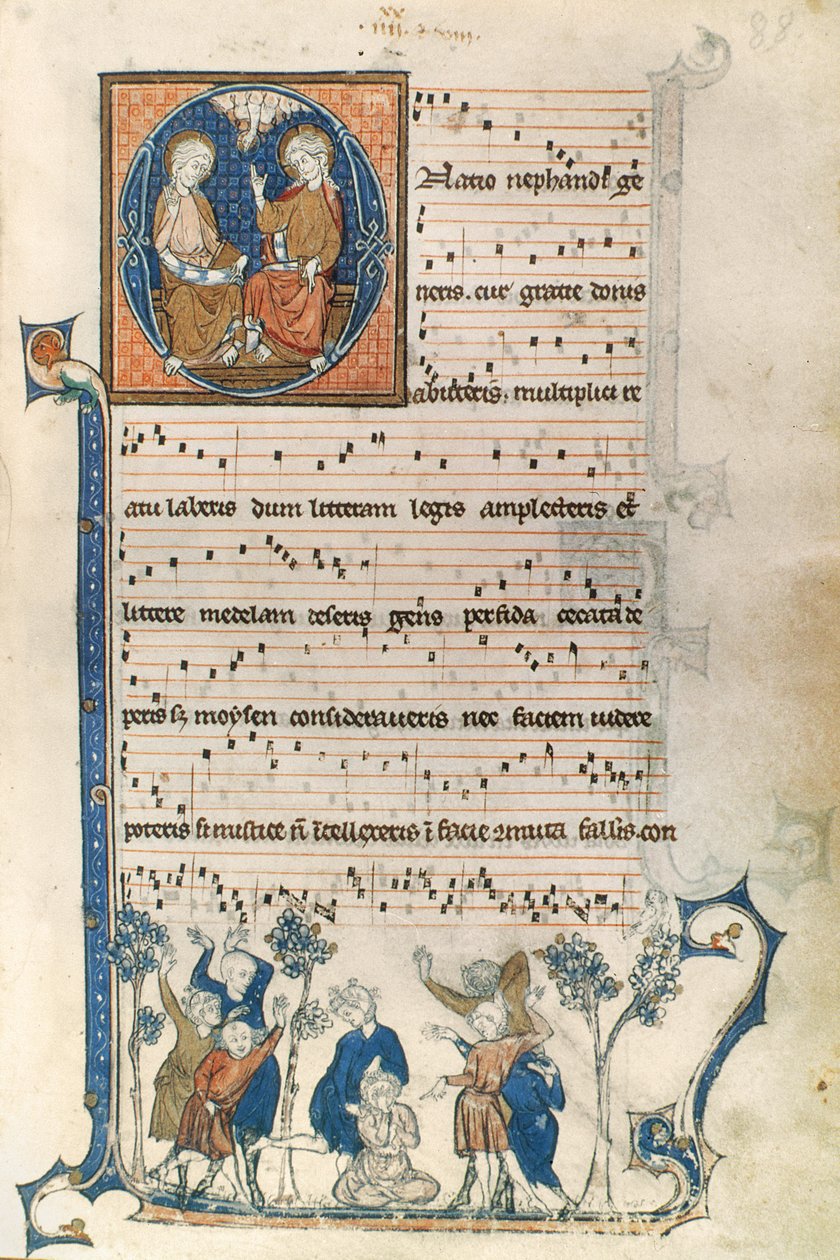 xx
iiii. & viii.
88.
Natio nephandi ge
neris. cur gratie donis
abuteris. multiplici re
atu laberis dum litteram legis amplecteris et
littere medelam deseris gens perfida cecata de
peris sz moysen consideraveris nec faciem videre
poteris si mistice n̄ ītellexeris ī facie 2muta fallis.con